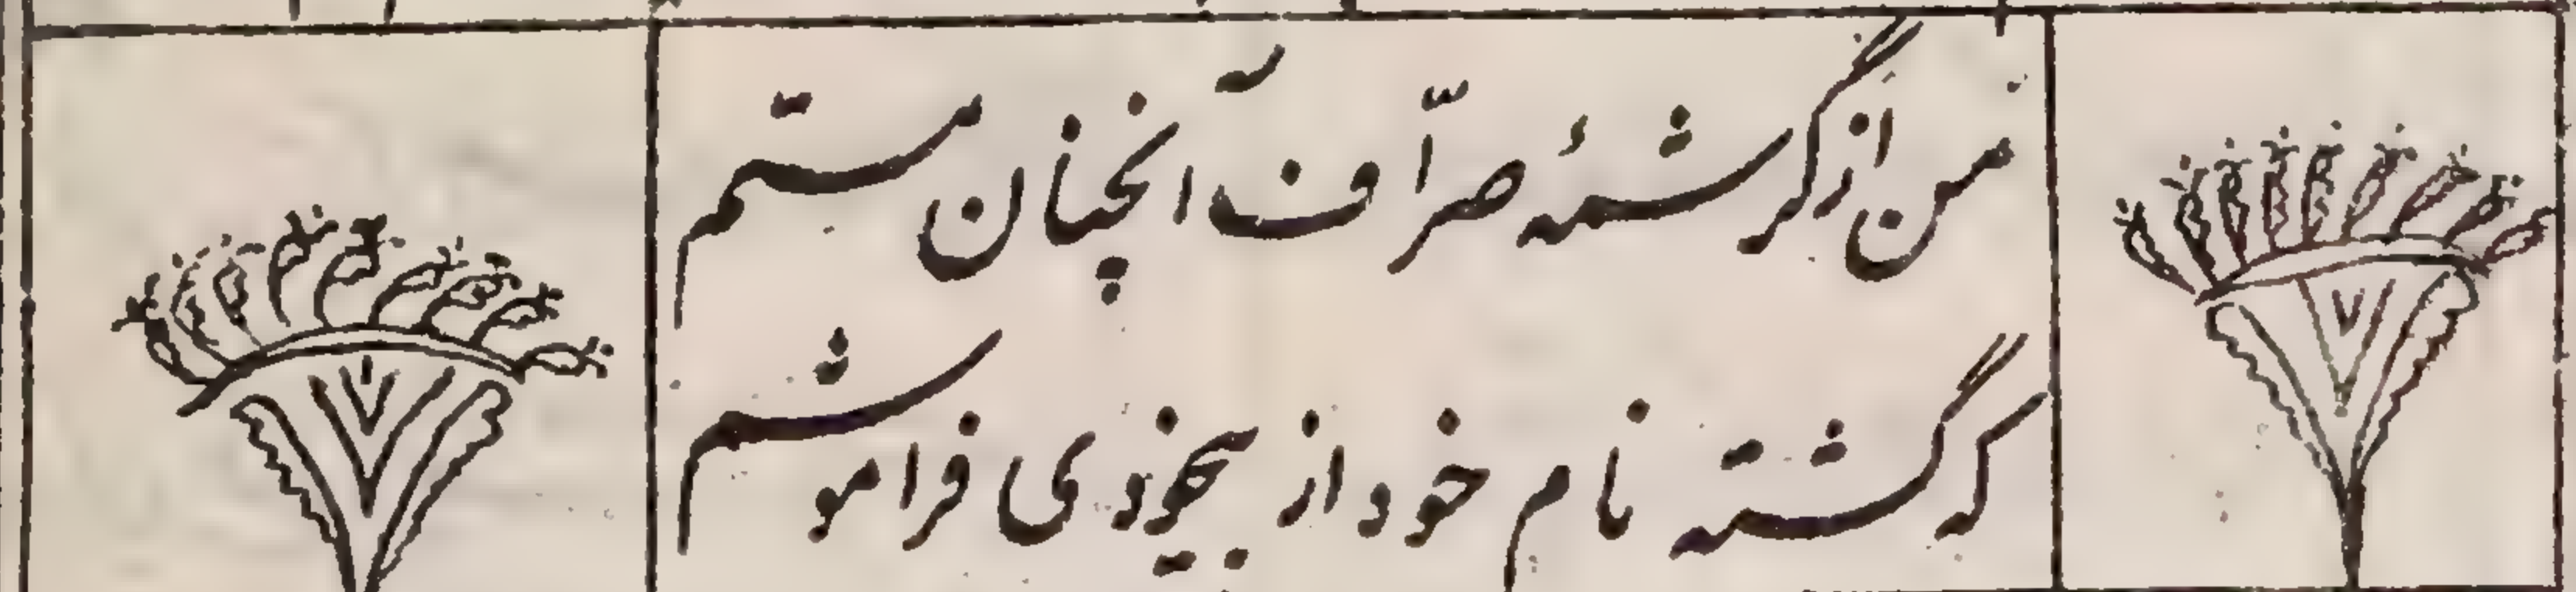 من از کرشمهٔ صرّاف آنچنان مستم
که گشته نام خود از بیخودی فراموشم